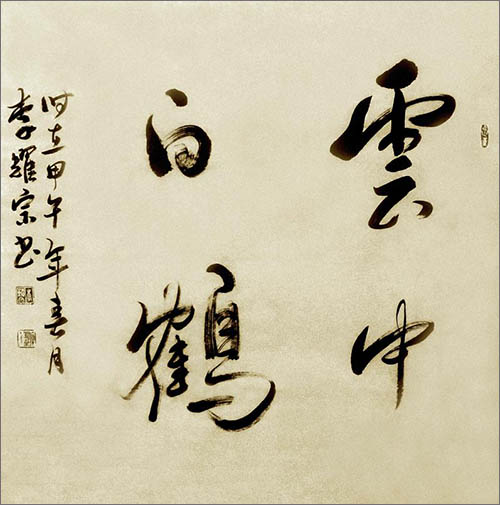 雲中
白鶴
时在甲午年春月
李耀宗书